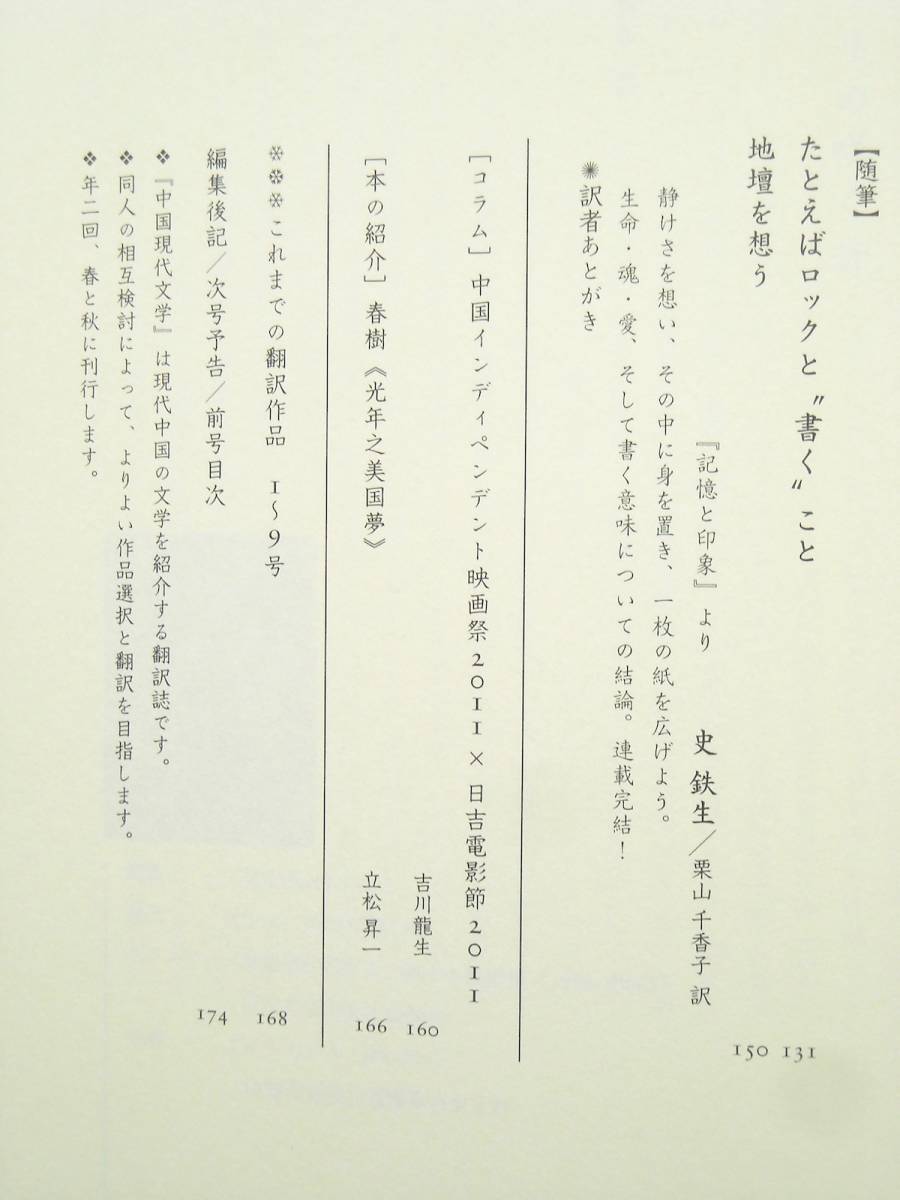 【随筆】
たとえばロックと〝書く〟こと
131
地壇を想う
150
『記憶と印象』より 史 鉄生／栗山 千香子 訳
静けさを想い、その中に身を置き、一枚の紙を広げよう。
生命・魂・愛、そして書く意味についての結論。連載完結！
✺訳者あとがき
［コラム］中国インディペンデント映画祭2011×日吉電影節2011
吉川龍生 160
［本の紹介］春樹《光年之美国夢》
立松 昇一 166
❊❊❊これまでの翻訳作品 1〜9号
168
編集後記／次号予告／前号目次
174
❖『中国現代文学』は現代中国の文学を紹介する翻訳誌です。
❖同人の相互検討によって、よりよい作品選択と翻訳を目指します。
❖年二回、春と秋に刊行します。